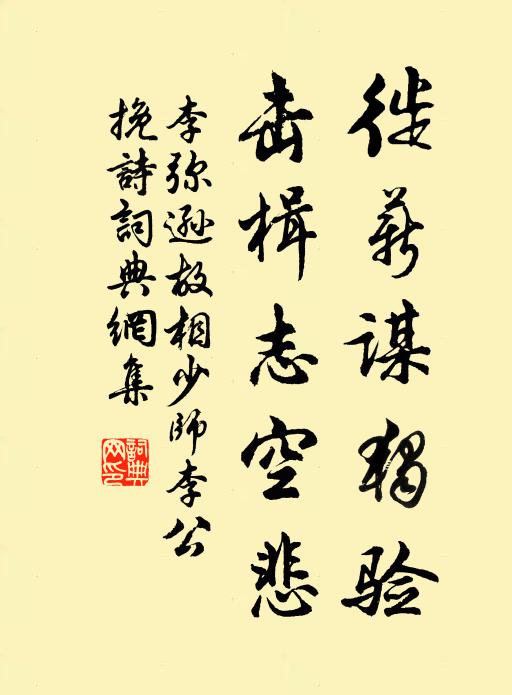 徙薪谋独验
击楫志空悲
李弥逊故相少师李公
挽詩詞典網集
詞典网印